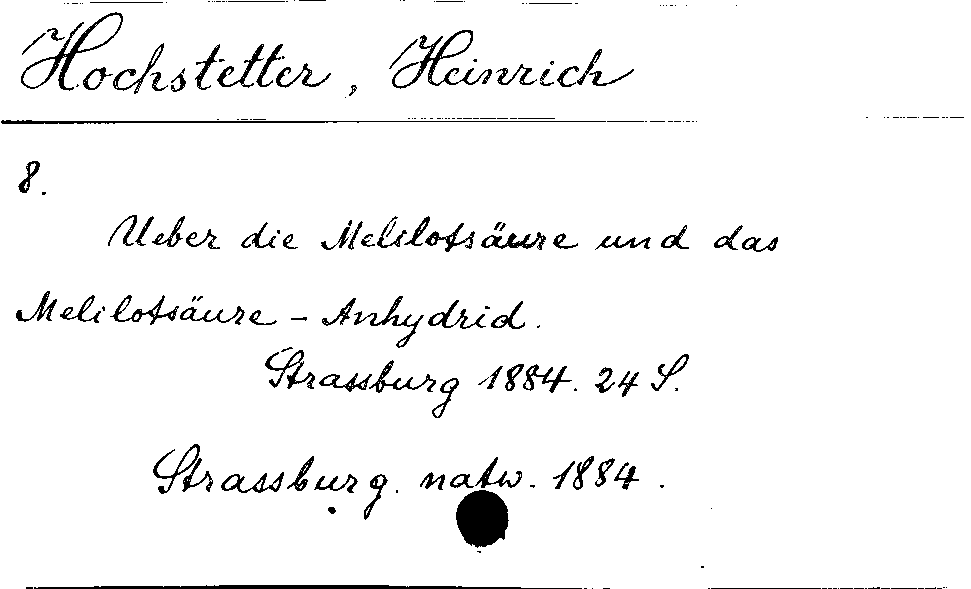 Hochstetter, Heinrich
8.
Ueber die Melilotsäure und das
Melilotsäure - Anhydrid.
Strassburg 1884. 24 S.
Strassburg. natw. 1884.